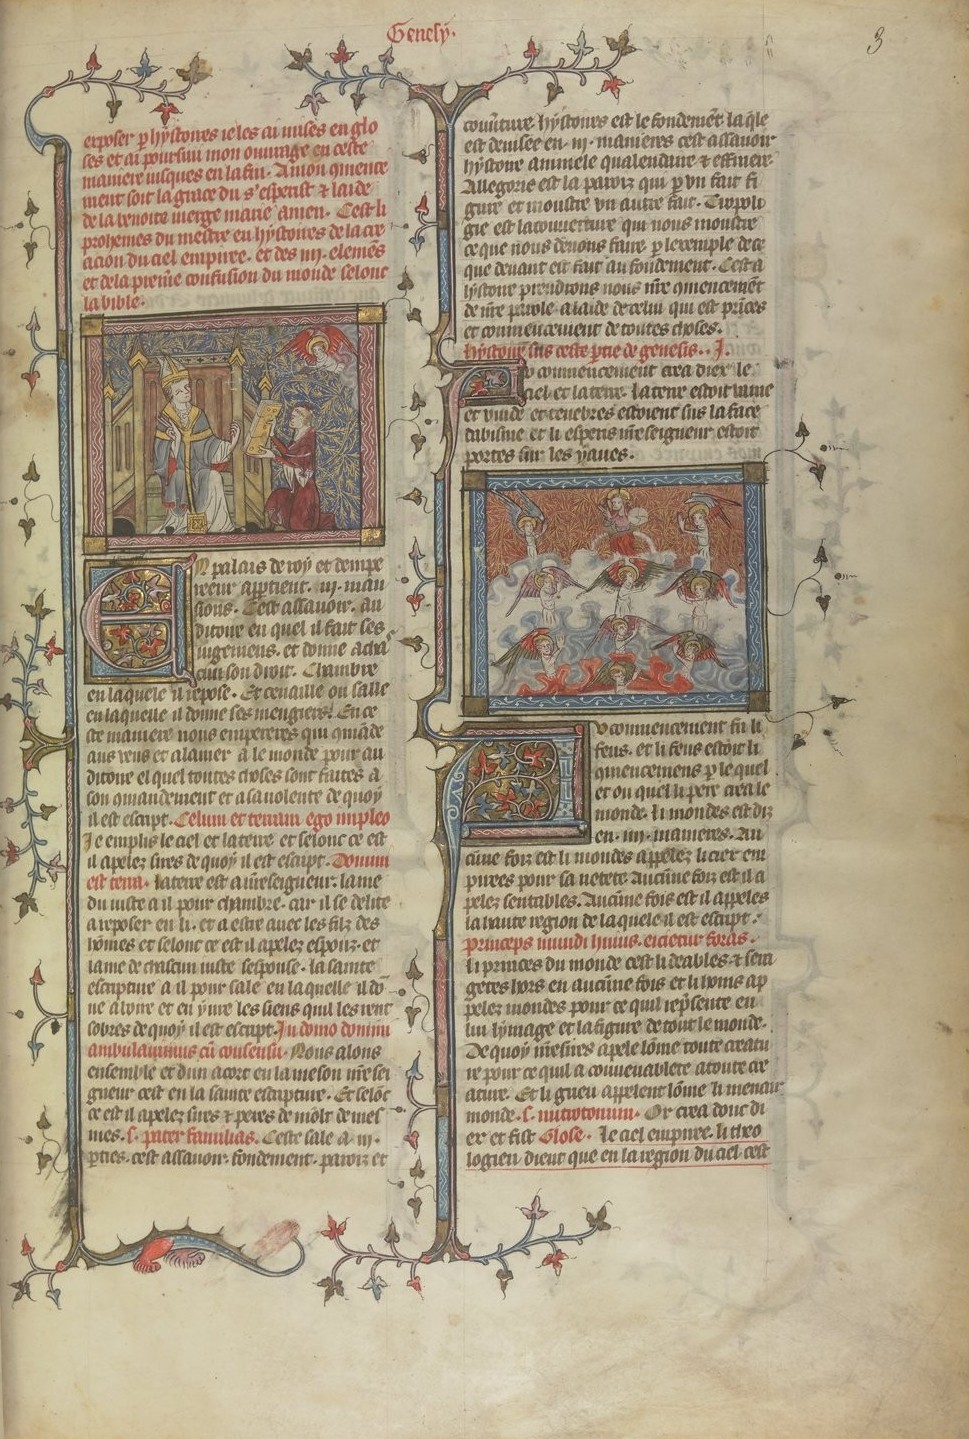 Genesy.
3
exposer p hystoires ie les ai mises en glo
ses et ai poursui mon ouurage en ceste
maniere iusques en la fin. A mon qmence
ment soit la grace du s'esperit & laide
de la benoite vierge marie amen. Cest li
prohemes du mestre en hystoires de la cre
acion du ciel empiree. et des .iiij. elemens
et de la premiere confusion du monde selonc
la bible.
En palais de roy et dempe
reeur apptient .iij. man
sions. Cest assauoir. au
ditoire en quel il fait ses
iugemens. et donne a chas
cun son droit. Chambre
en laquele il repose. Et cenaille ou salle
en laquelle il donne ses mengiers. En ce
ste maniere nous empereres qui qmade
aus vens et a la mer a le monde pour au
ditoire el quel toutes choses sont faites a
son qmandement et a sa volente de quoy
il est escript. Celum et terram ego impleo
Je emplis le ciel et la terre et selonc ce est
il apelez sires de quoy il est escript. Domini
est terra. la terre est a nreseigneur. lame
du iuste a il pour chambre. car il se delite
a reposer en li. et a estre auec les filz des
homes et selonc ce est il apelez espouz. et
lame de chascun iuste sespouse. la sainte
escripture a il pour sale en laquele il do
ne a boire et en yure les siens quil les rent
sobres de quoy il est escript. In domo domini
ambulauimus cu consensu. Nous alons
ensemble et dun acort en la meson nresei
gneur cest en la sainte escripture. Et selonc
ce est il apelez sires & peres de molt de mes
nies. s. pater familias. Ceste sale a .iij.
pties. cest assauoir. fondement. paroiz et
couuture hystoires est le fondement la qle
est deuisee en .iij. manieres cest assauoir
hystoire annuele qualendaire & effimere
Allegorie est la paroiz qui p vn fait fi
gure et moustre vn autre fait. Tropolo
gie est la couuerture qui nous moustre
ce que nous deuons faire p lexemple de ce
que deuant est fait au fondement. Cest a
hystoire prendrons nous nre qmencement
de nre parole a laide de celui qui est princes
et commencement de toutes choses.
hystoire sus ceste ptie de genesis. .I.
Au commencement crea diex le
ciel et la terre. la terre estoit vaine
et vuide et tenebres estoient sus la face
dabisme et li esperis nreseigneur estoit
portes sur les yaues.
Au commencement fu li
feus. et li feus estoit li
qmencemens p le quel
et ou quel li pere crea le
monde. li mondes est diz
en .iiij. manieres. Au
cune foiz est li mondes appelez li ciex em
pirees pour sa netete. Aucune foiz est il a
pelez sensables. Aucune fois est il appeles
la haute region de laquele il est escript.
princeps mundi huius. eicietur foras.
li princes du monde cest li deables & sera
getes hors en aucune fois et li homs ap
pelez mondes pour ce quil represente en
lui lymage et la figure de tout le monde.
De quoy nresires apele lome toute creatu
re pour ce quil a conuenablete a toute cre
ature. Et li grieu appelent lome li meneur
monde. s. microtomum. Or crea donc di
ex et fist Glose. le ciel empiree. li theo
logien dient que en la region du ciel cest